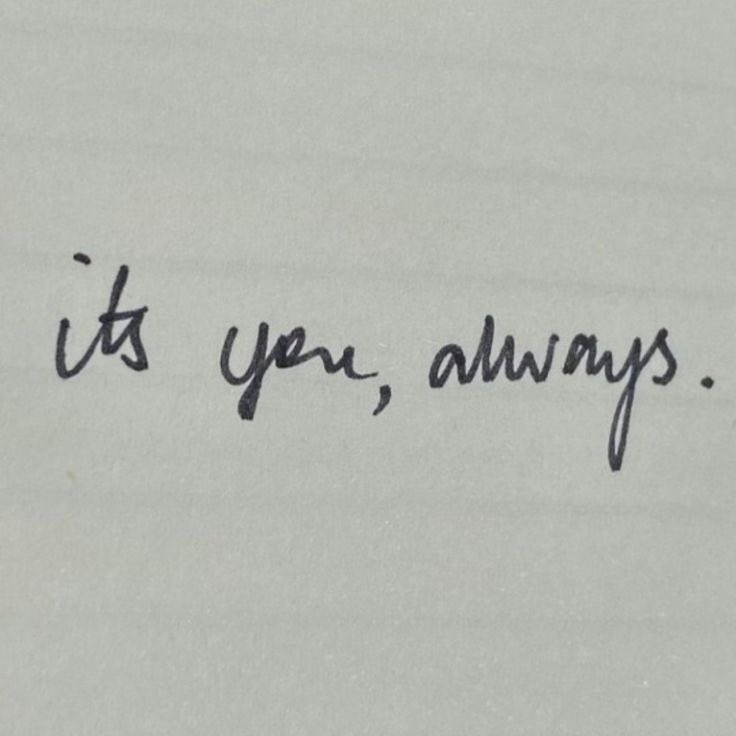 its you, always.